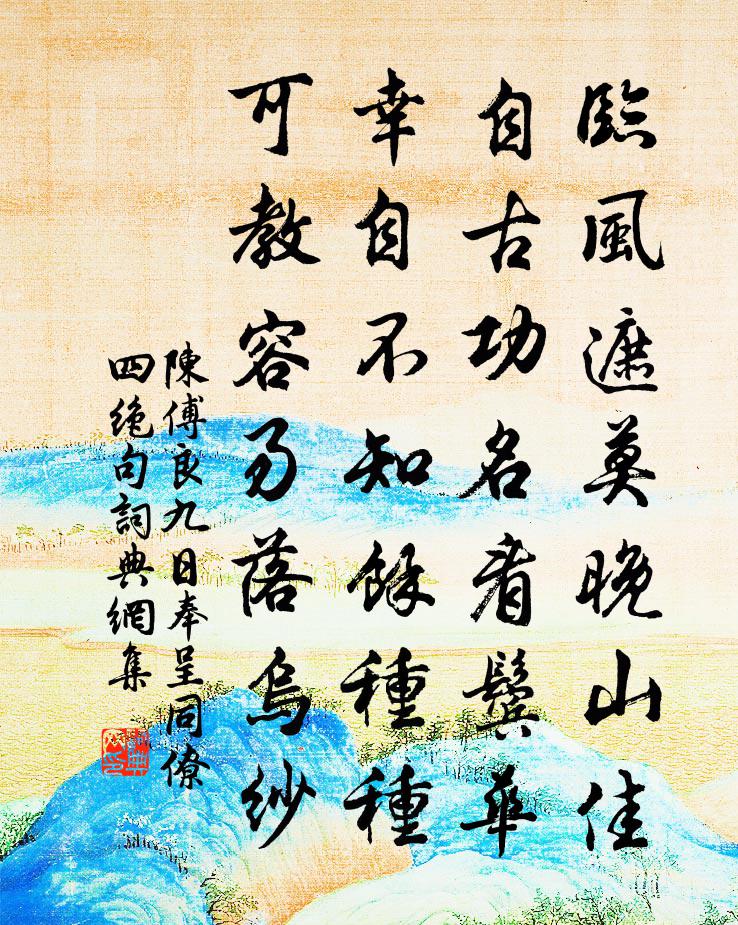 臨風遮莫晚山佳
自古功名看鬢華
幸自不知餘種種
可教容易落烏紗
陳傅良九日奉呈同僚
四絶句詞典網集